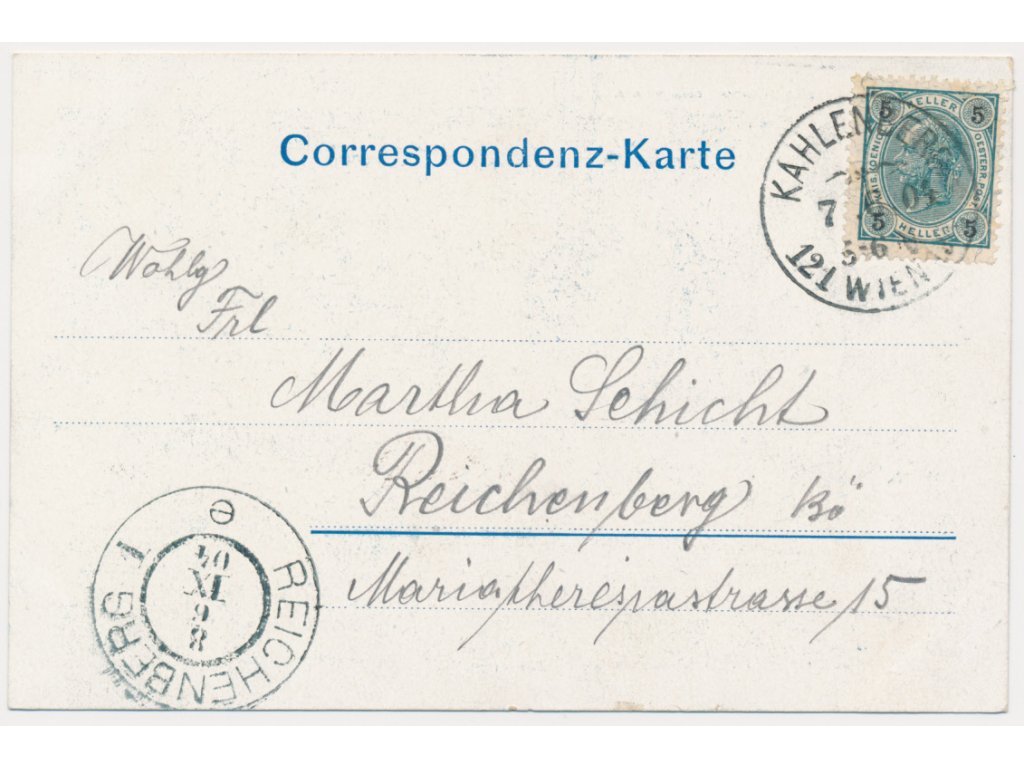 Correspondenz-Karte
KAHLENBERG
7
04
5-6 N
121 WIEN
5 HELLER 5
KAIS. KOENIGL. OESTERR. POST
5 HELLER 5
Wohlg
Frl
Martha Schicht
Reichenberg Bö
Mariatheresiastrasse 15
REICHENBERG 1
e
8
9
IX
04